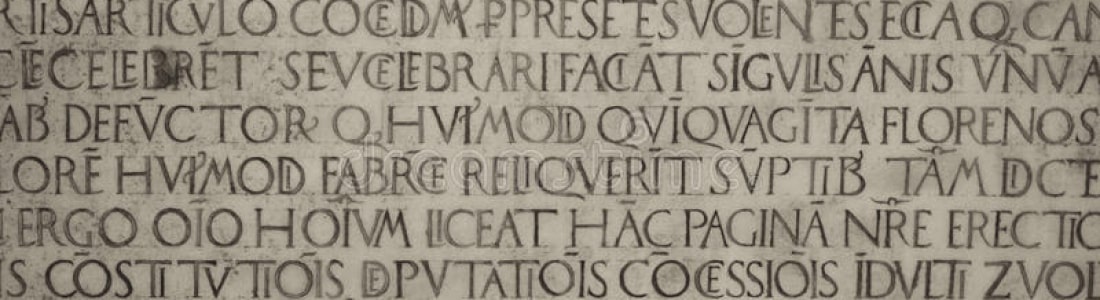 RTIS ARTICVLO COCEDIM⁹ P PRESETES VOLENTES EC̄IA Q, CAN
CIE CELEBRĒT SEV CELEBRARI FACIĀT SĪGVLIS ĀNIS VNV̄ A
AB DEFV̄CTOR Q, HVI⁹MODI QVĪQVAGĪTA FLORENOS
LORĒ HVI⁹MODI FABRICE RELIQVERĪT SV̄PTIB TĀM DICTE
ERGO OĪO HOĪVM LICEAT HĀC PAGINĀ NR̄E ERECTIO
IS CŌSTITV̄TIŌIS DEPVTATIŌIS CŌCESSIŌIS ĪDVLTI Z VOL